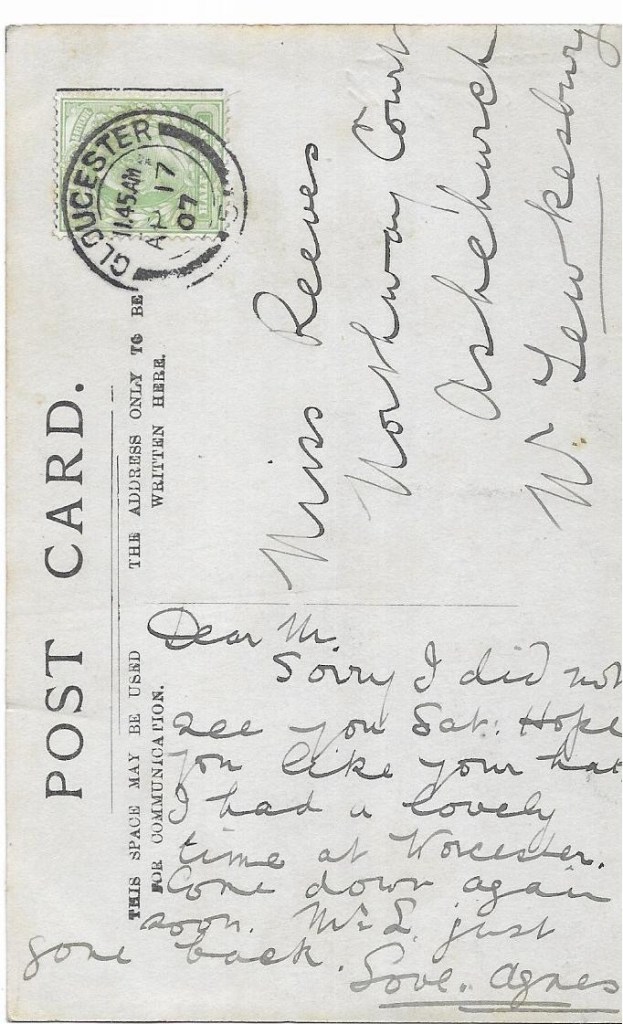 POST CARD.
THIS SPACE MAY BE USED
FOR COMMUNICATION.
THE ADDRESS ONLY TO BE
WRITTEN HERE.
GLOUCESTER
11.45 AM
AP 17
07
Miss Reeves
Northway Court
Ashchurch
Nr Tewkesbury
Dear M.
Sorry I did not
see you Sat: Hope
you like your hat,
I had a lovely
time at Worcester.
Come down again
soon. Mr L. just
gone back.
Love. Agnes